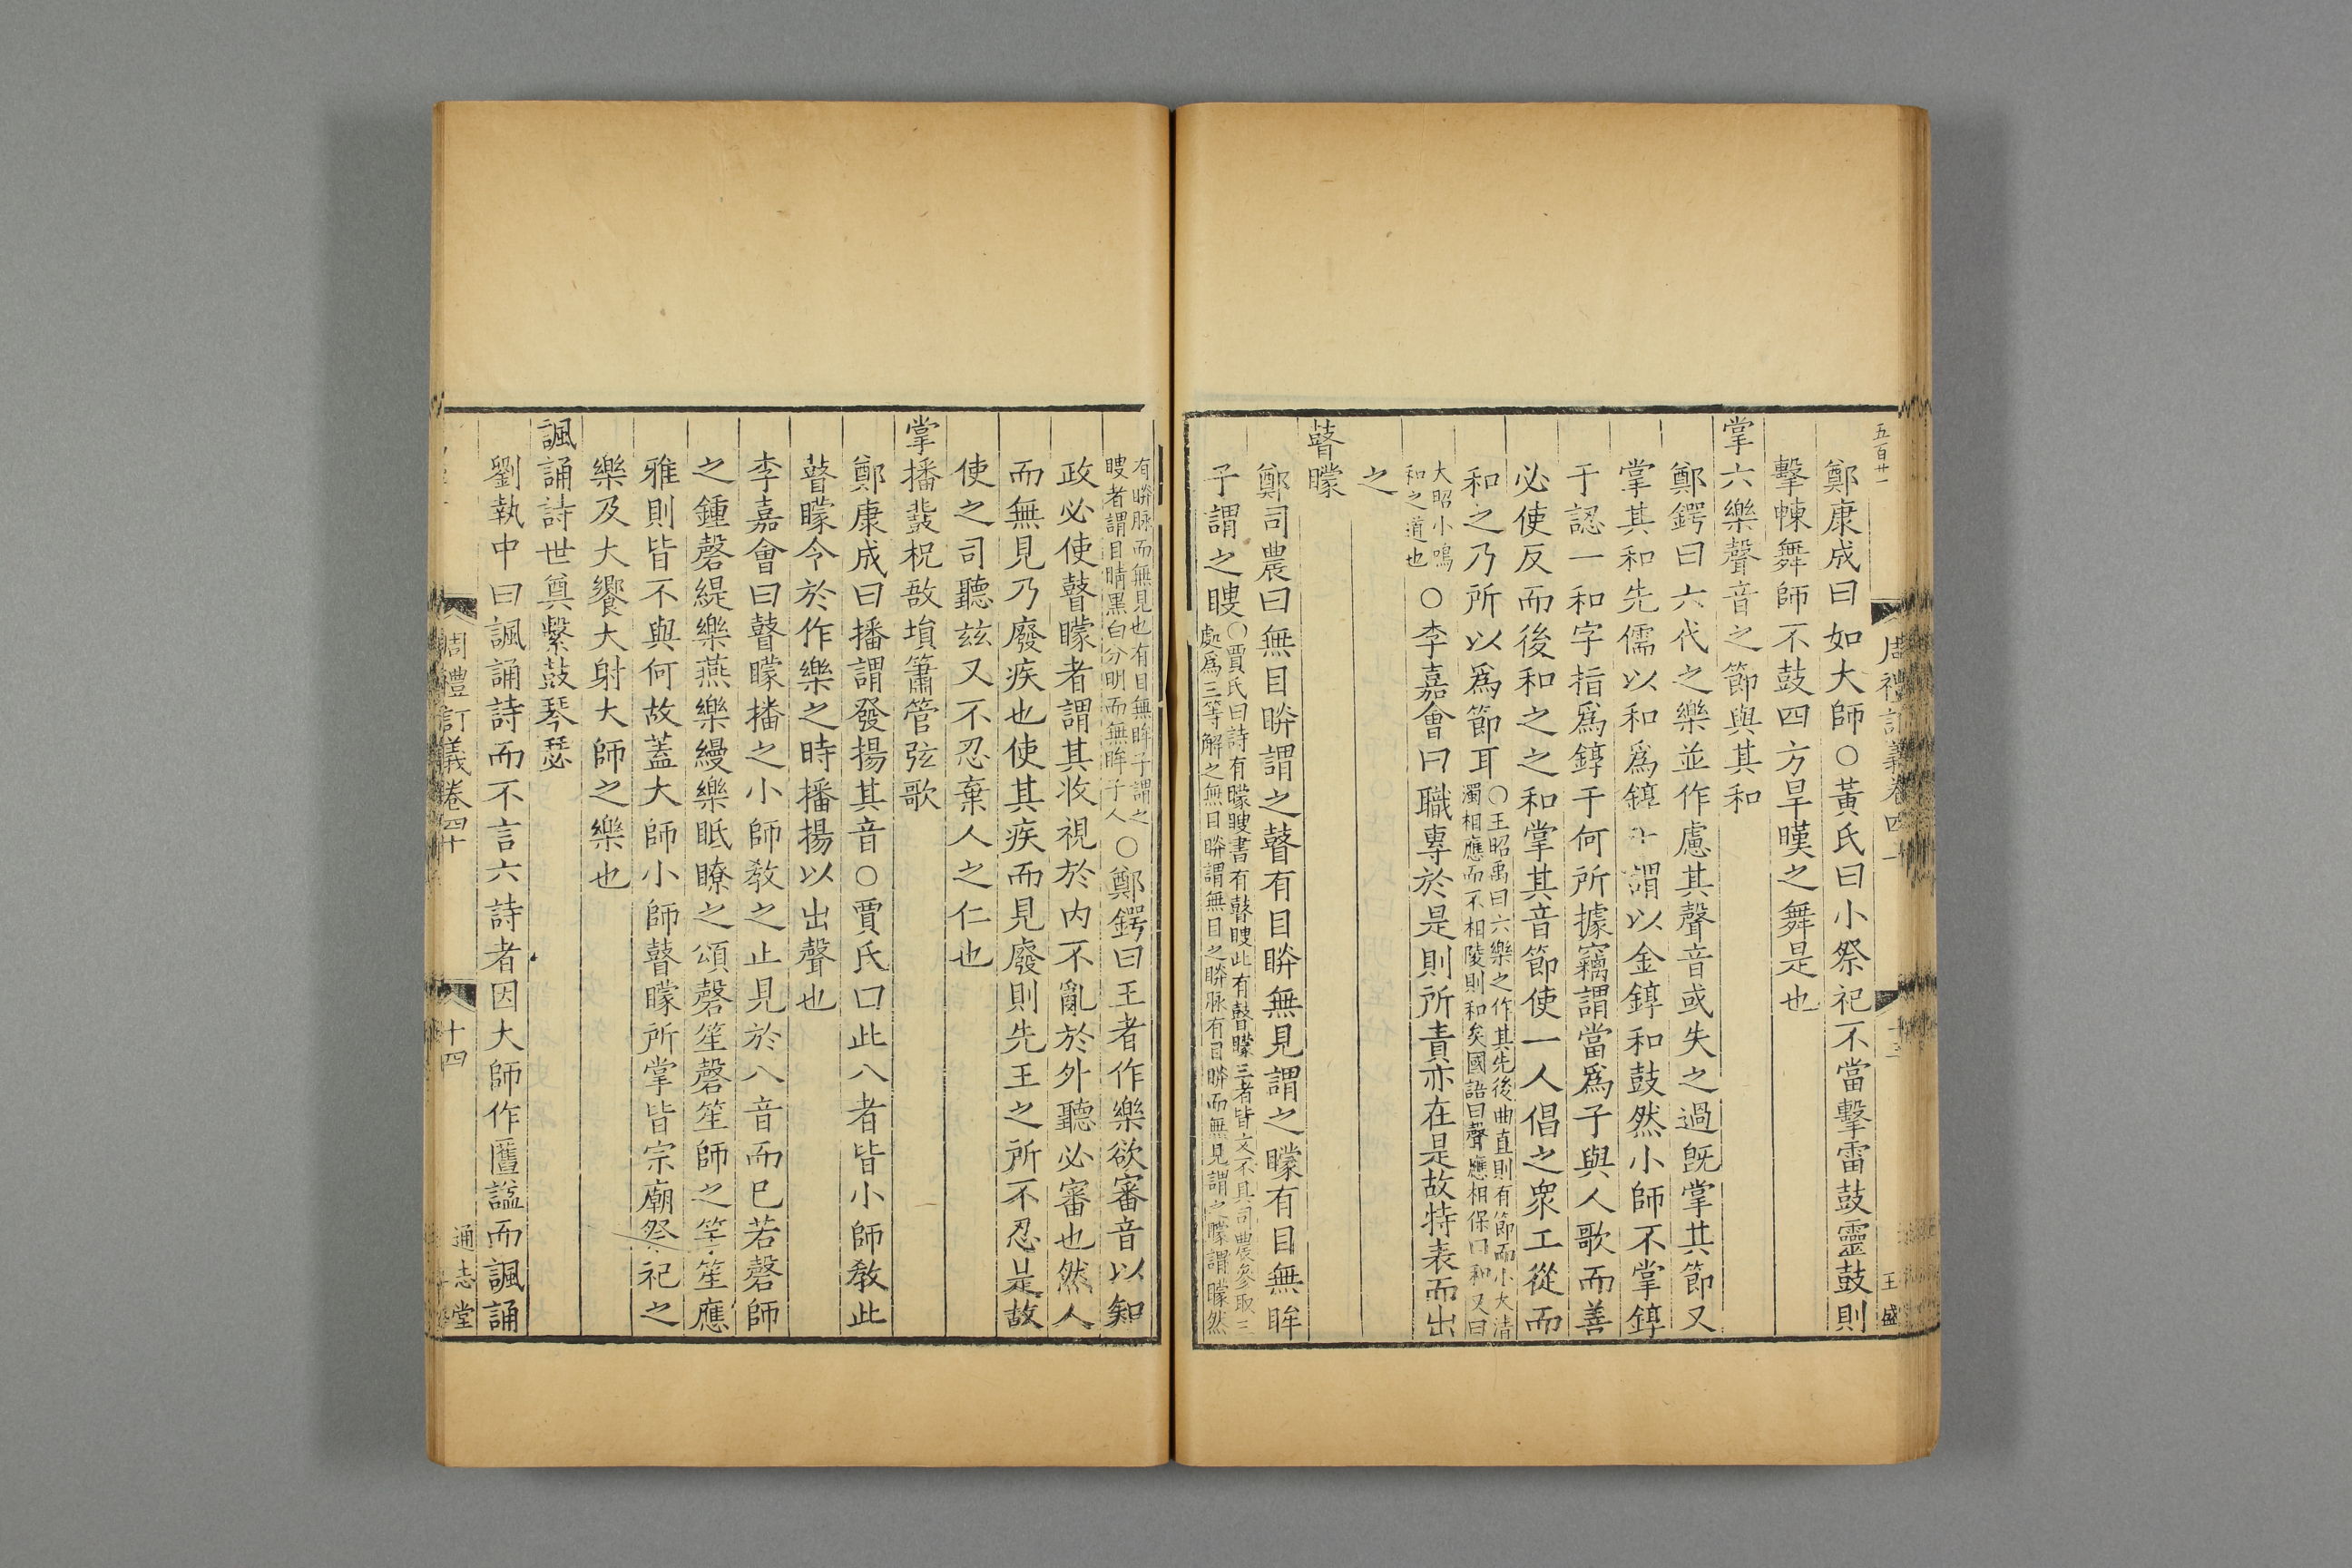 五百廿一
周禮訂義卷四
王盛
鄭康成曰如大師○黃氏曰小祭祀不當擊雷鼓靈鼓則
擊帗舞師不鼓四方旱暵之舞是也
掌六樂聲音之節與其和
鄭鍔曰六代之樂並作慮其聲音或失之過旣掌其節又
掌其和先儒以和爲錞于謂以金錞和鼓然小師不掌錞
于認一和字指爲錞于何所據竊謂當爲子與人歌而善
必使反而後和之之和掌其音節使一人倡之衆工從而
和之乃所以爲節耳
○王昭禹曰六樂之作其先後曲直則有節而小大清
濁相應而不相陵則和矣國語曰聲應相保曰和又曰
大昭小鳴
和之道也
○李嘉會曰職專於是則所責亦在是故特表而出
之
瞽矇
鄭司農曰無目眹謂之瞽有目眹無見謂之矇有目無眸
子謂之瞍
○賈氏曰詩有矇瞍書有瞽瞍此有瞽矇三者皆文不具司農參取三
處爲三等解之無目眹謂無目之眹脉有目眹而無見謂之矇謂矇然
有眹脉而無見也有目無眸子謂之
瞍者謂目睛黑白分明而無眸子人
○鄭鍔曰王者作樂欲審音以知
政必使瞽矇者謂其收視於内不亂於外聽必審也然人
而無見乃廢疾也使其疾而見廢則先王之所不忍是故
使之司聽玆又不忍棄人之仁也
掌播鼗柷敔塤簫管弦歌
鄭康成曰播謂發揚其音○賈氏曰此八者皆小師敎此
瞽矇令於作樂之時播揚以出聲也
李嘉會曰瞽矇播之小師敎之止見於八音而巳若磬師
之鍾磬緹樂燕樂縵樂眡瞭之頌磬笙磬笙師之竽笙應
雅則皆不與何故蓋大師小師瞽矇所掌皆宗廟祭祀之
樂及大饗大射大師之樂也
諷誦詩世奠繫鼓琴瑟
劉執中曰諷誦詩而不言六詩者因大師作匶諡而諷誦
周禮訂義卷四十
十四
通志堂